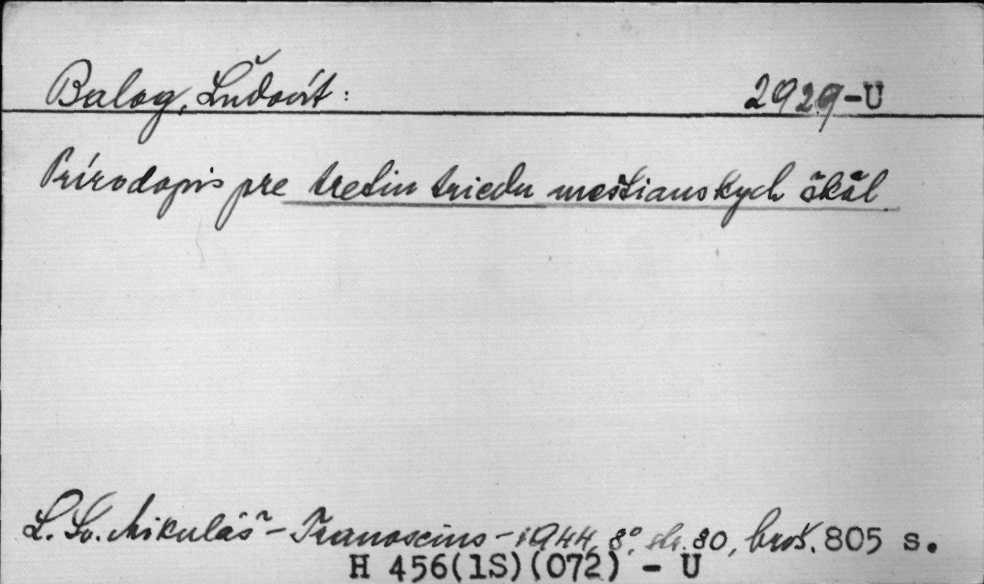 Balog, Ľudovít: 2929-U
Prírodopis pre tretiu triedu meštianskych škôl
L. Sv. Mikuláš - Tranoscius - 1944, 8°, str. 80, brož. 805 s.
H 456(1S)(072) - U